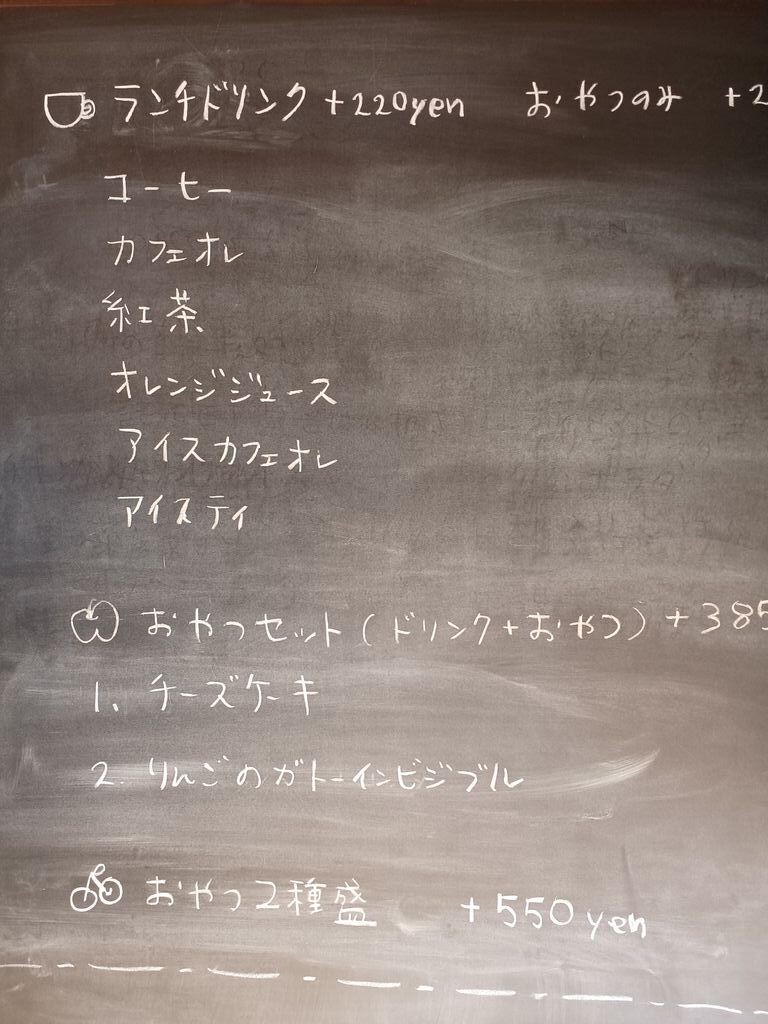 ランチドリンク +220yen おやつのみ +2
コーヒー
カフェオレ
紅茶
オレンジジュース
アイスカフェオレ
アイスティ
おやつセット(ドリンク+おやつ) +385
1. チーズケーキ
2. りんごのガトーインビジブル
おやつ2種盛 +550yen